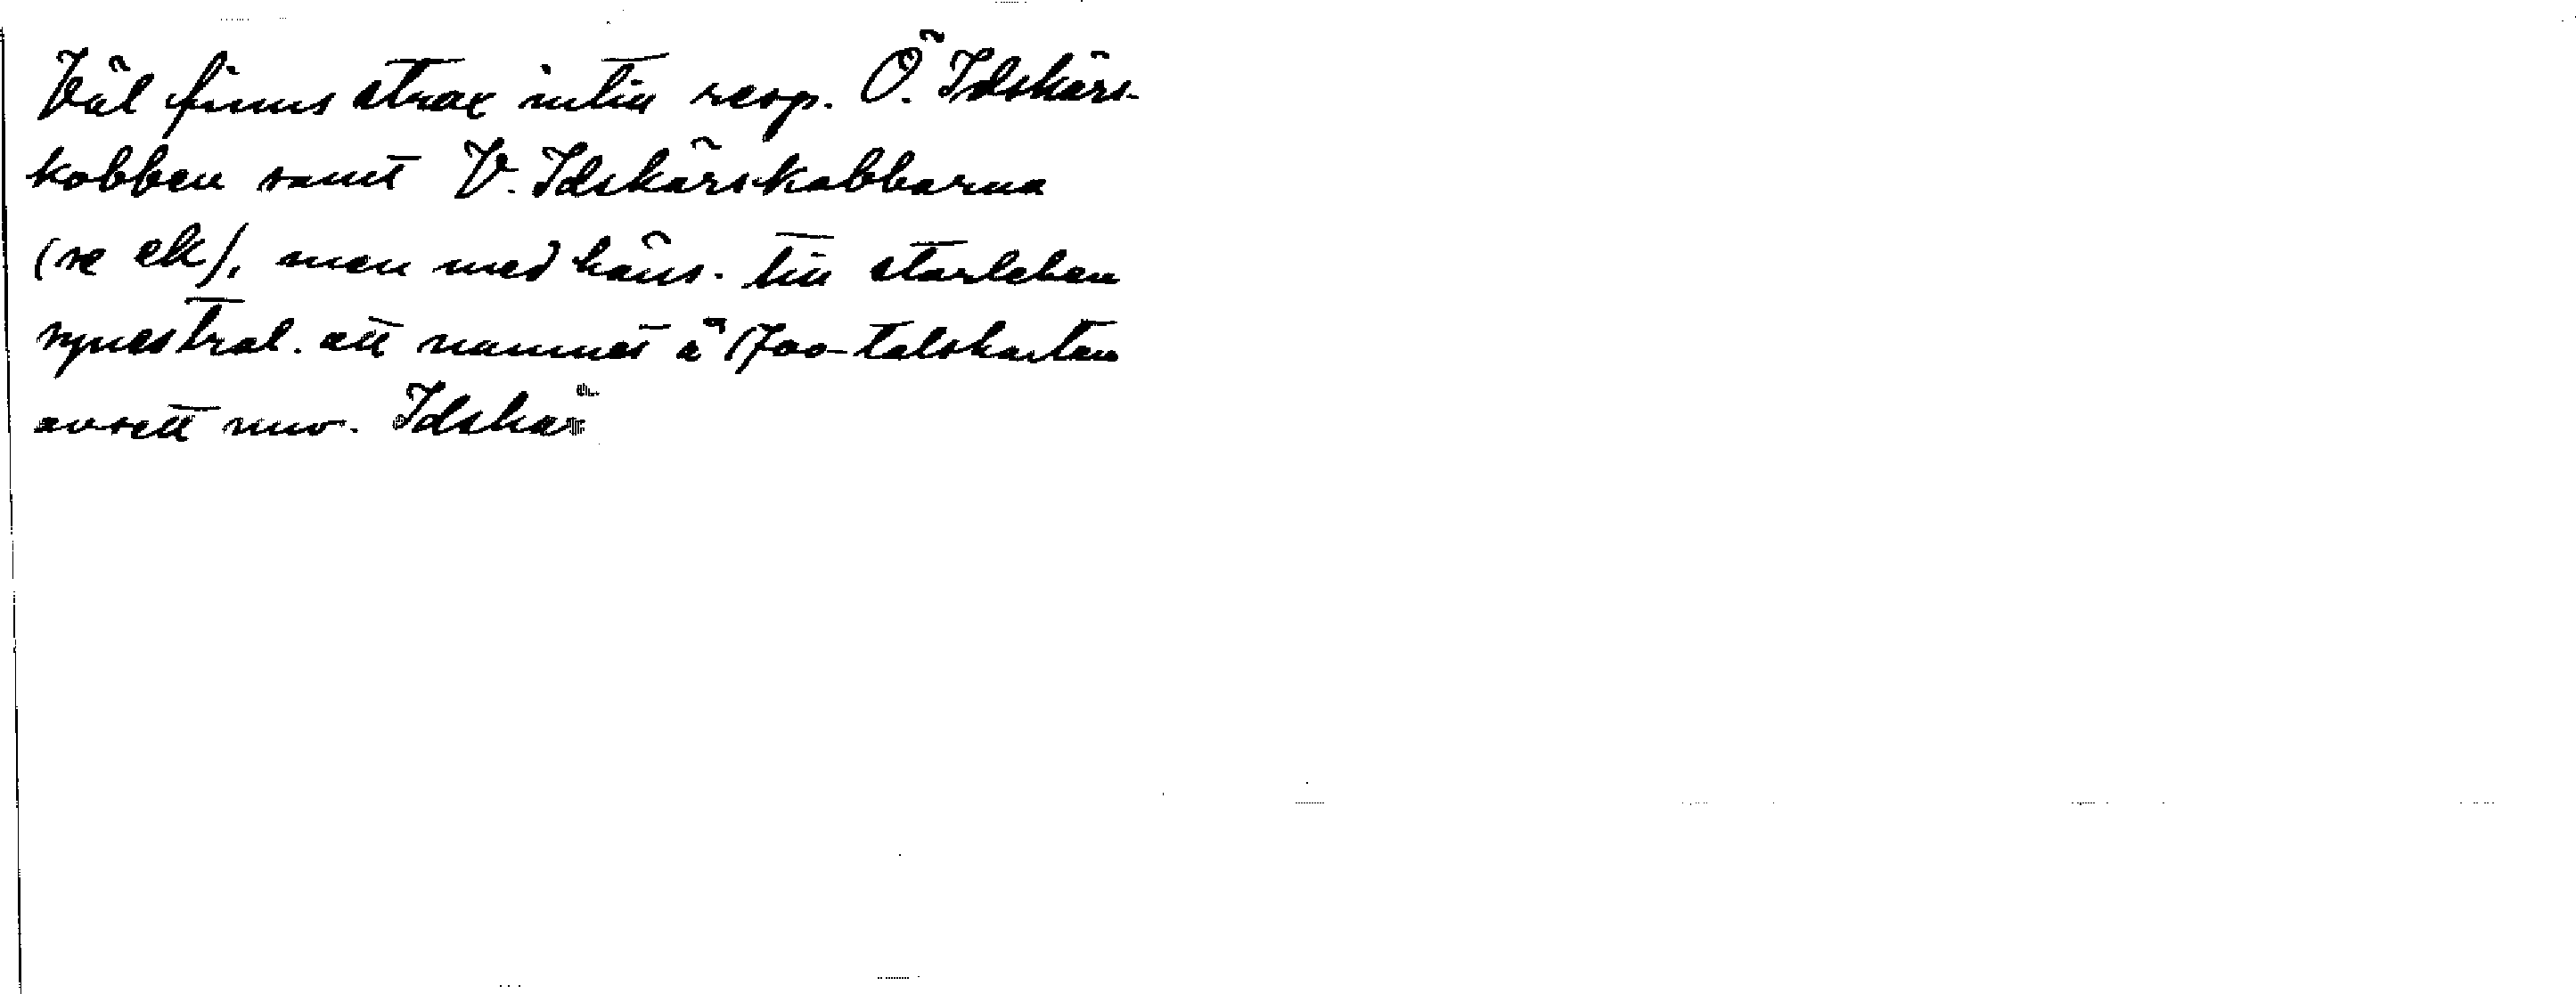 Väl finns strax intill resp. Ö. Idskärs-
kobben samt V. Idskärskobbarna
(se ek), men med häns. till storleken
synes tral. att namnet å 1700-talskartan
avsett nuv. Idskär